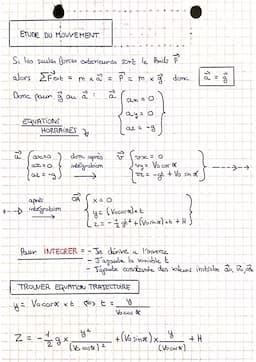 ETUDE DU MOUVEMENT
Si les seules forces exterieures sont le Poids P⃗
alors ΣF⃗ext = m x a⃗ = P⃗ = m x g⃗ donc a⃗ = g⃗
Donc pour g⃗ ou a⃗ : a⃗ { ax = 0
ay = 0
az = -g
EQUATIONS
HORAIRES
a⃗ { ax = 0 donc après v⃗ { vx = 0
ay = 0 intégration vy = Vo cos α
az = -g vz = -gt + Vo sin α
après OA⃗ { x = 0
intégration y = (Vo cos α) x t
z = -1/2 gt² + (Vo sin α) x t + H
Pour INTEGRER = - Je dérive à l'inverse
- J'ajoute la variable t
- J'ajoute constante des valeurs initiales
TROUVER EQUATION TRAJECTOIRE
y = Vo cos α x t ⇔ t = y / Vo cos α
Z = -1/2 g x y² / (Vo cos α)² + (Vo sin α) x y / (Vo cos α) + H